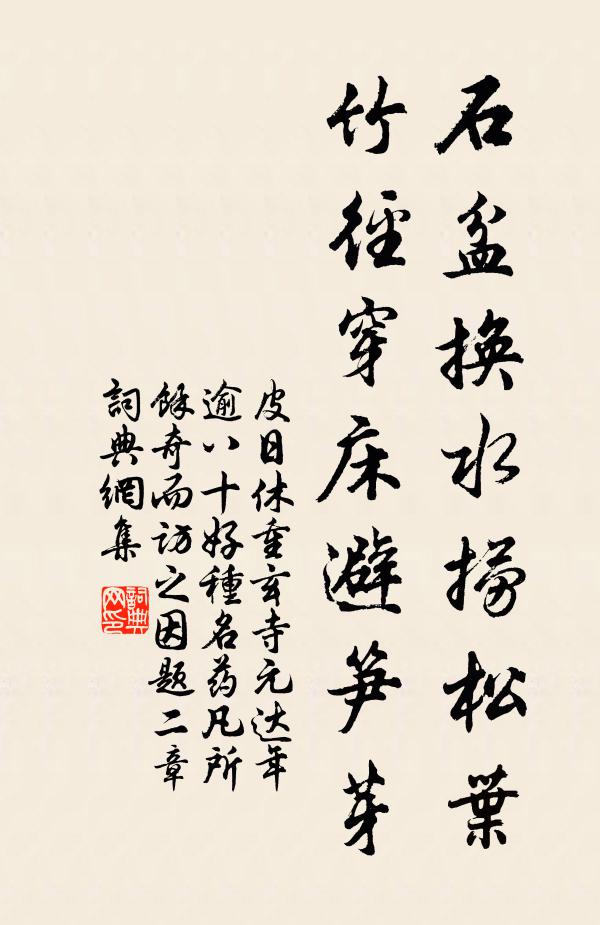 石盆換水撈松葉
竹徑穿床避笋芽
皮日休重玄寺元达年
逾八十好種名药凡所
餘奇而访之因题二章
詞典網集
詞典
网印